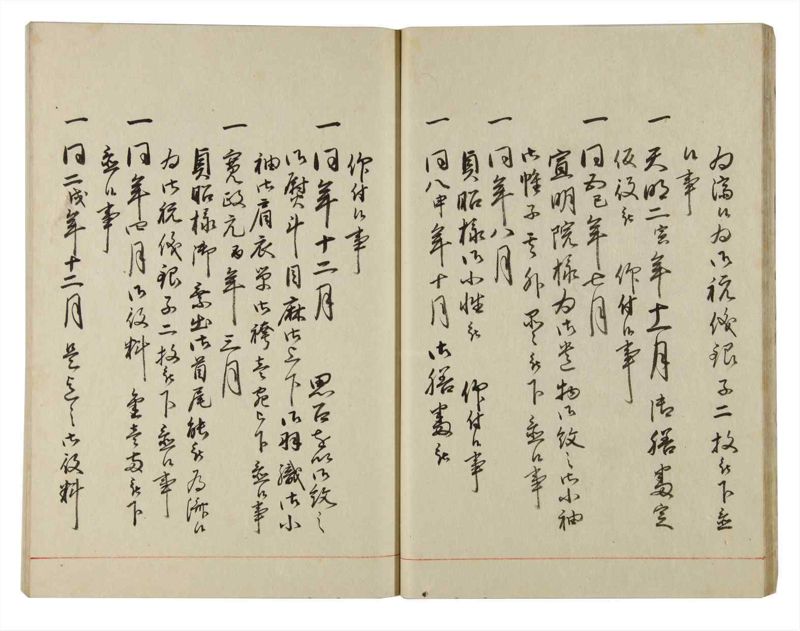 為済候為御祝儀銀子二枚被下置
候事
一天明二寅年十一月御膳番定
仮役被 仰付候事
一同五巳年七月
宣明院様為御遺物御紋之御小袖
御帷子其外品々被下置候事
一同年八月
貞昭様御小性被 仰付候事
一同八申年十月御膳番被
仰付候事
一同年十二月 思召を以御紋之
御熨斗目麻御上下御羽織御小
袖御肩衣単御袴壱宛被下置候事
一寛政元酉年三月
貞昭様御 京出御首尾能被為済候
為御祝儀銀子二枚被下置候事
一同年四月御役料 金壱両被下
置候事
一同二戌年十二月 是迄之御役料